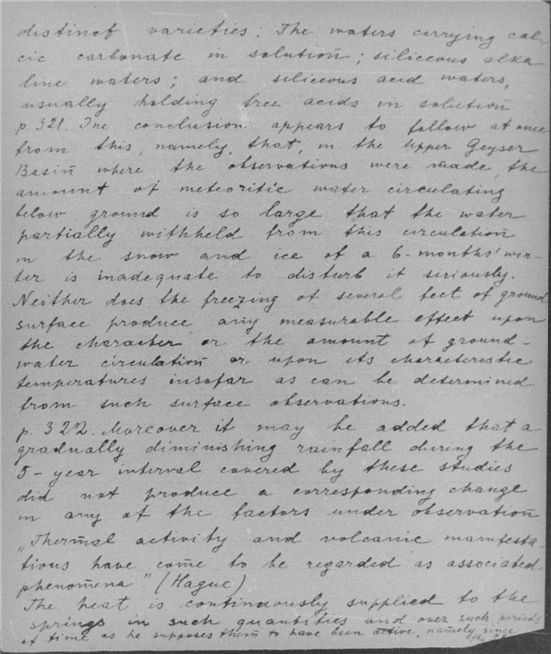 distinct varieties. The waters carrying cal-
cic carbonate in solution; siliceous alka
line waters; and siliceous acid waters,
usually holding free acids in solution
p. 321. The conclusion appears to follow at once
from this, namely, that, in the Upper Geyser
Basin where the observations were made, the
amount of meteoritic water circulating
below ground is so large that the water
partially withheld from this circulation
in the snow and ice of a 6-months' win-
ter is inadequate to disturb it siriously.
Neither does the freezing of several feet of ground
surface produce any measurable effect upon
the character or the amount of ground-
water circulation or upon its characteristic
temperatures insofar as can be determined
from such surface observations.
p. 322. Moreover it may be added that a
gradually diminishing rainfall during the
5-year interval covered by these studies
did not produce a corresponding change
in any of the factors under observation
„Thermal activity and volcanic manifesta-
tions have come to be regarded as associated
phenomena" (Hague)
The heat is continuously supplied to the
springs in such quantities and over such periods
of time as he supposes them to have been active, namely since